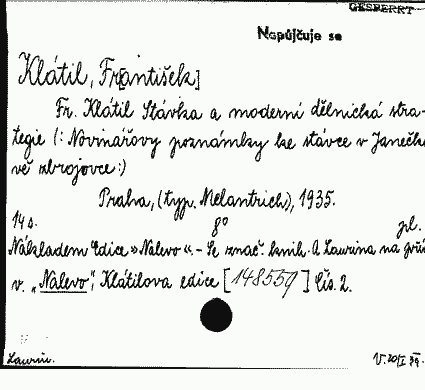 GESPERRT
Nepůjčuje se
Klátil, Fr[antišek]
Fr. Klátil Stávka a moderní dělnická stra-
tegie (: Novinářovy poznámky ke stávce v Janečko-
vě zbrojovce :)
Praha, (typ. Melantrich), 1935.
14 s. 8° pl.
Nákladem Edice »Nalevo«. - Se znač. knih. A. Laurina na
v. „Nalevo", Klátilova edice [148559] čís. 2.
Laurin. V. 20/I 39.